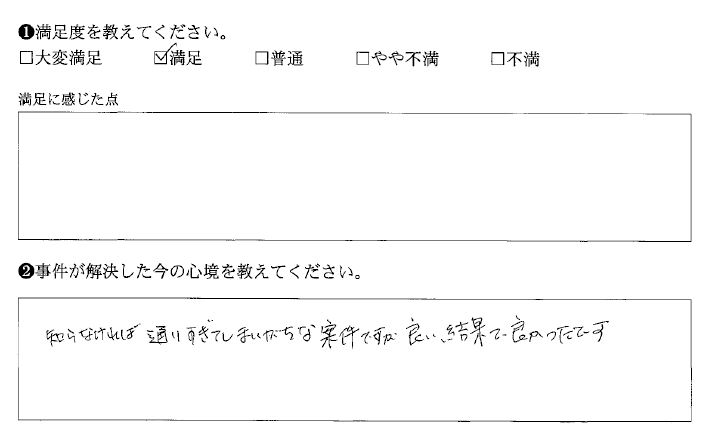 ❶満足度を教えてください。
□大変満足 ☑満足 □普通 □やや不満 □不満
満足に感じた点
❷事件が解決した今の心境を教えてください。
知らなければ通りすぎてしまいがちな案件ですが良い結果で良かったです